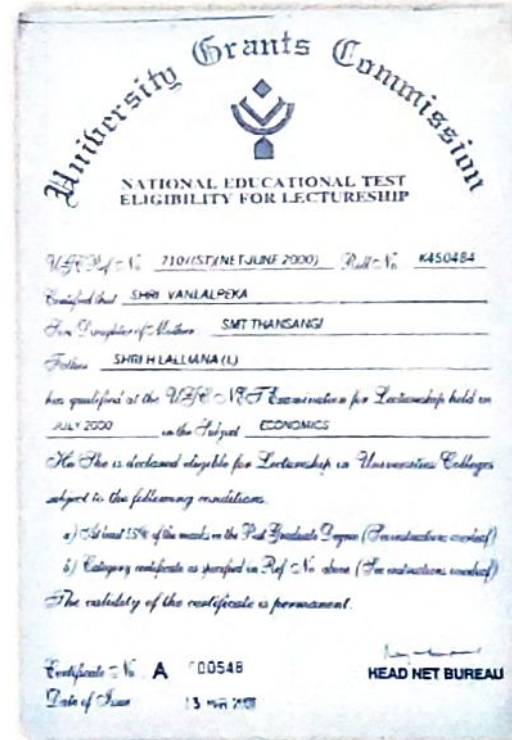 University Grants Commission
NATIONAL EDUCATIONAL TEST
ELIGIBILITY FOR LECTURESHIP
UGC Ref. No. 710/(ST)(NET-JUNE 2000) Roll No. K450484
Certified that SHRI VANLALPEKA
Son/Daughter of Mother SMT THANSANGI
Father SHRI H LALLIANA (L)
has qualified at the UGC-NET Examination for Lectureship held on
JULY 2000 in the Subject ECONOMICS
He/She is declared eligible for Lectureship in Universities/Colleges
subject to the following conditions.
a) At least 55% of the marks in the Post Graduate Degree (See instructions overleaf)
b) Category certificate as specified in Ref. No. above (See instructions overleaf)
The validity of the certificate is permanent.
Certificate No. A 00548
HEAD NET BUREAU
Date of Issue 13